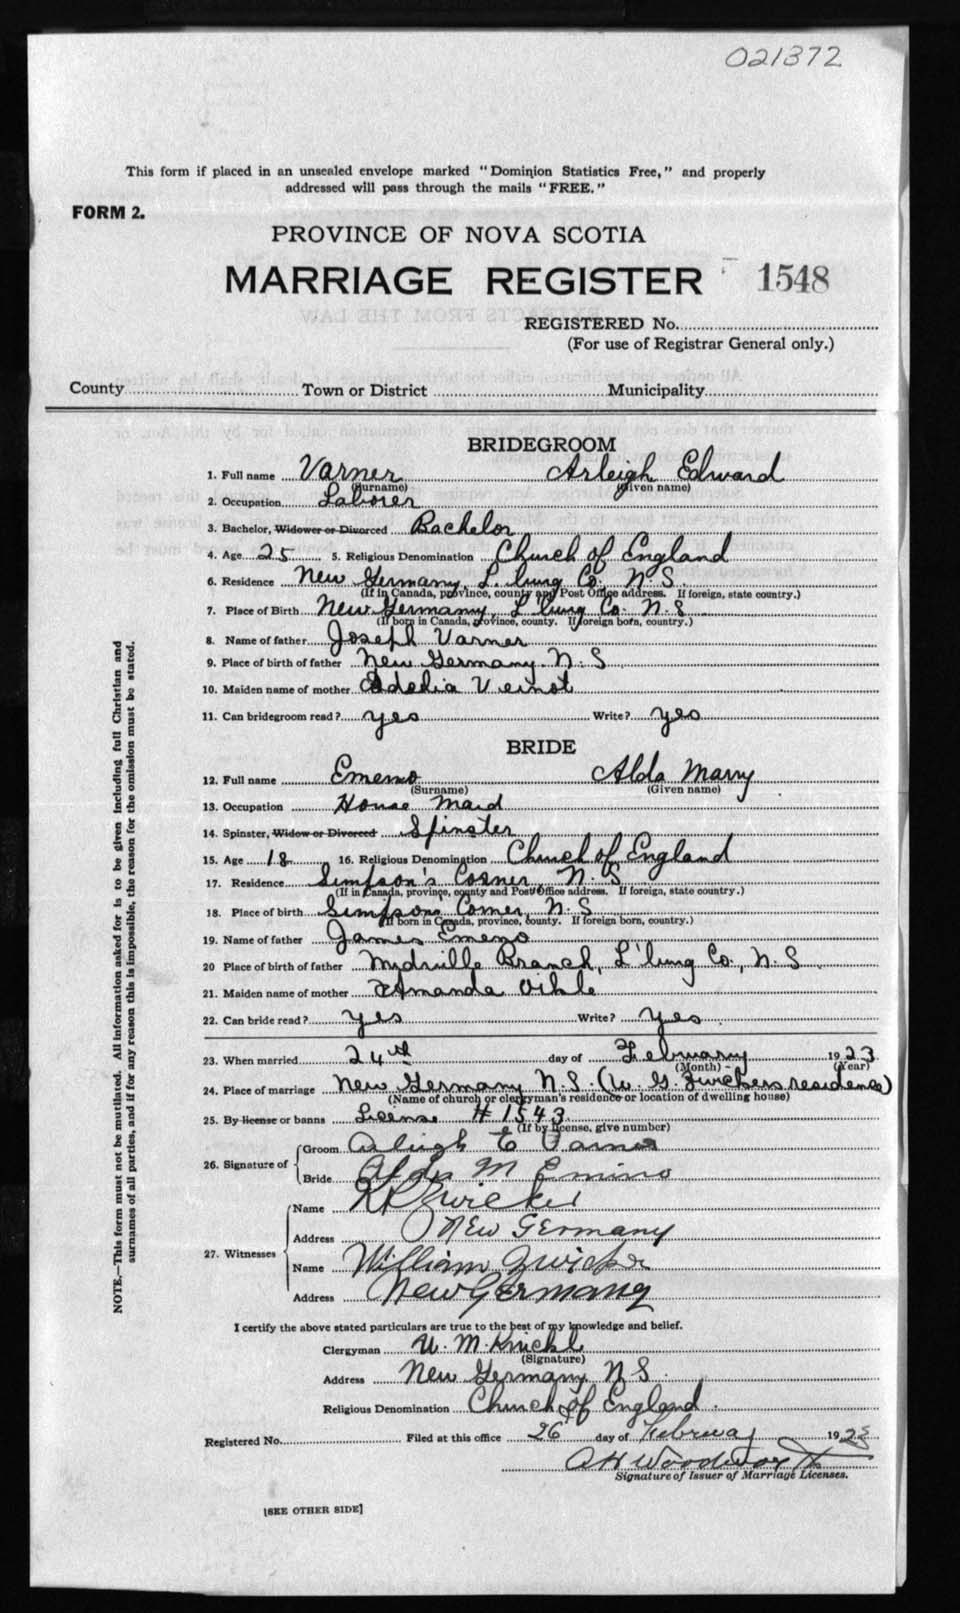 021372
This form if placed in an unsealed envelope marked "Dominion Statistics Free," and properly
addressed will pass through the mails "FREE."
FORM 2.
PROVINCE OF NOVA SCOTIA
MARRIAGE REGISTER 1548
REGISTERED No.
(For use of Registrar General only.)
County Town or District Municipality
BRIDEGROOM
1. Full name Varner Arleigh Edward
(Surname) (Given name)
2. Occupation Laborer
3. Bachelor, Widower or Divorced Bachelor
4. Age 25 5. Religious Denomination Church of England
6. Residence New Germany, L'burg Co. N.S.
(If in Canada, province, county and Post Office address. If foreign, state country.)
7. Place of Birth New Germany, L'burg Co. N.S
(If born in Canada, province, county. If foreign born, country.)
8. Name of father Joseph Varner
9. Place of birth of father New Germany N.S
10. Maiden name of mother Adelia Veinot
11. Can bridegroom read? yes Write? yes
BRIDE
12. Full name Emeno Alda Mary
(Surname) (Given name)
13. Occupation House Maid
14. Spinster, Widow or Divorced Spinster
15. Age 18 16. Religious Denomination Church of England
17. Residence Simpson's Corner, N.S
(If in Canada, province, county and Post Office address. If foreign, state country.)
18. Place of birth Simpsons Corner, N.S
(If born in Canada, province, county. If foreign born, country.)
19. Name of father James Emeno
20 Place of birth of father Midville Branch, L'burg Co., N.S
21. Maiden name of mother Amanda Oikle
22. Can bride read? yes Write? yes
23. When married 24th day of February 1923
(Month) (Year)
24. Place of marriage New Germany N.S. (W. G. Zwickers residence)
(Name of church or clergyman's residence or location of dwelling house)
25. By license or banns License # 1543
(If by license, give number)
26. Signature of Groom Arleigh E Varner
Bride Alda M Emino
27. Witnesses Name Zwicker
Address New Germany
Name William Zwicker
Address New Germany
I certify the above stated particulars are true to the best of my knowledge and belief.
Clergyman W. M. Knickle
(Signature)
Address New Germany N.S.
Religious Denomination Church of England.
Registered No. Filed at this office 26 day of February 1923
A H Woodworth
Signature of Issuer of Marriage Licenses.
[SEE OTHER SIDE]
NOTE.—This form must not be mutilated. All information asked for is to be given including full Christian and
surnames of all parties, and if for any reason this is impossible, the reason for the omission must be stated.